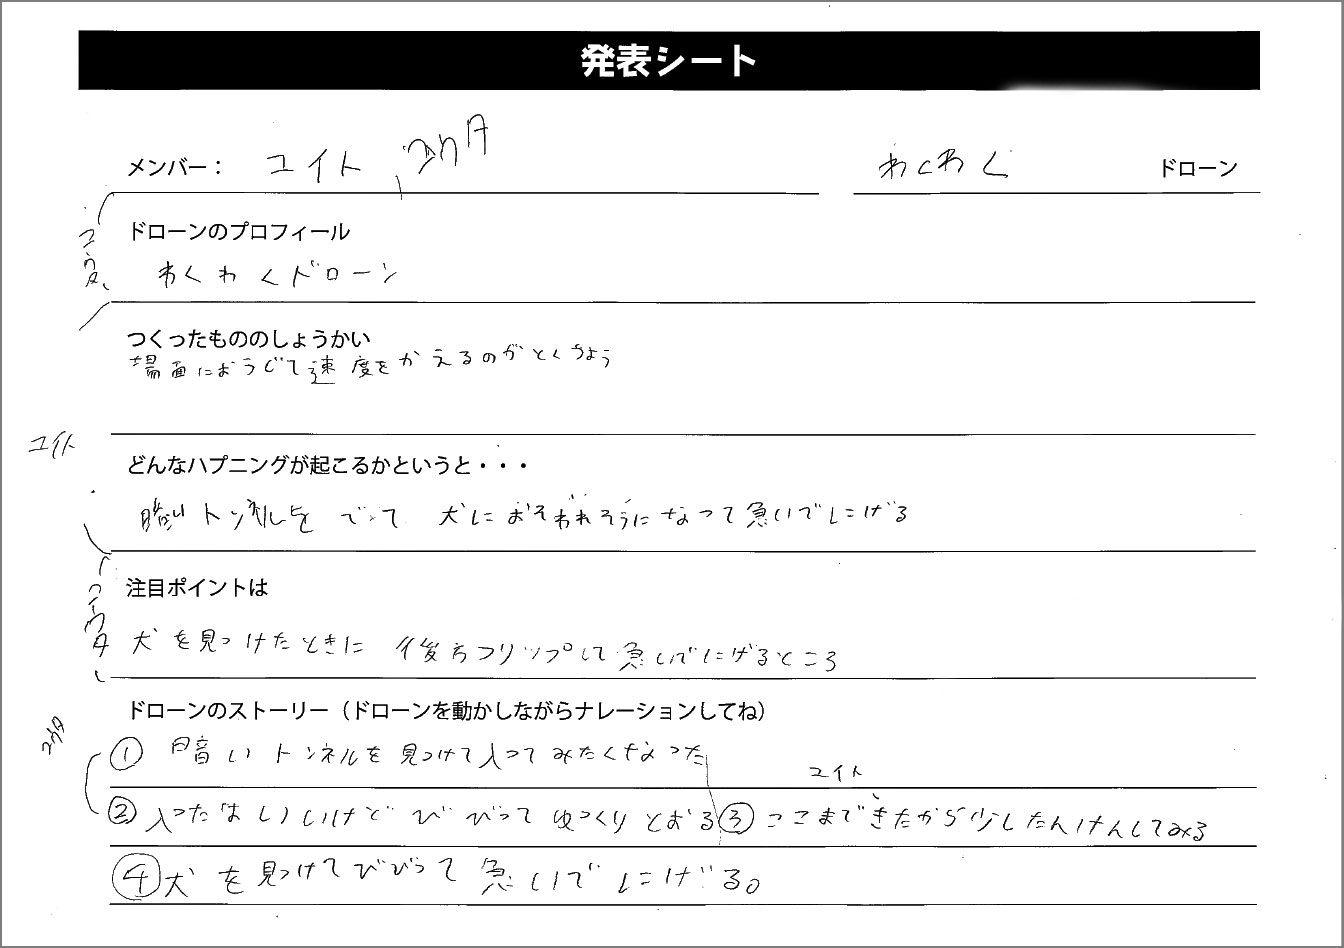 発表シート
メンバー： ユイト、コウタ
わくわく ドローン
コウタ
ドローンのプロフィール
わくわくドローン
つくったもののしょうかい
場面におうじて速度をかえるのがとくちょう
ユイト
どんなハプニングが起こるかというと・・・
暗いトンネルをでって 犬におそわれそうになって急いでにげる
コウタ
注目ポイントは
犬を見つけたときに 後方フリップして急いでにげるところ
コウタ
ドローンのストーリー（ドローンを動かしながらナレーションしてね）
① 暗いトンネルを見つけて入ってみたくなった
ユイト
② 入ったはいいけどびびってゆっくりとおる ③ ここまできたから少したんけんしてみる
④ 犬を見つけてびびって急いでにげる。